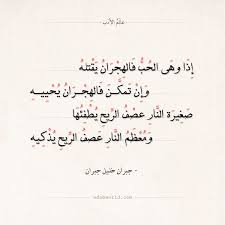 عالم الأدب
إِذَا وَهَى الحُبُّ فَالهِجْرَانُ يَقْتلهُ
وَإنْ تمكَّنَ فَالهِجْرَانُ يُحْيِيهِ
صَغِيرَة النَّارِ عَصْفُ الرِّيحِ يُطْفِئُهَا
وَمُعْظَمُ النَّارِ عَصفُ الرِّيحِ يُذْكِيهِ
- جبران خليل جبران -
adabworld.com